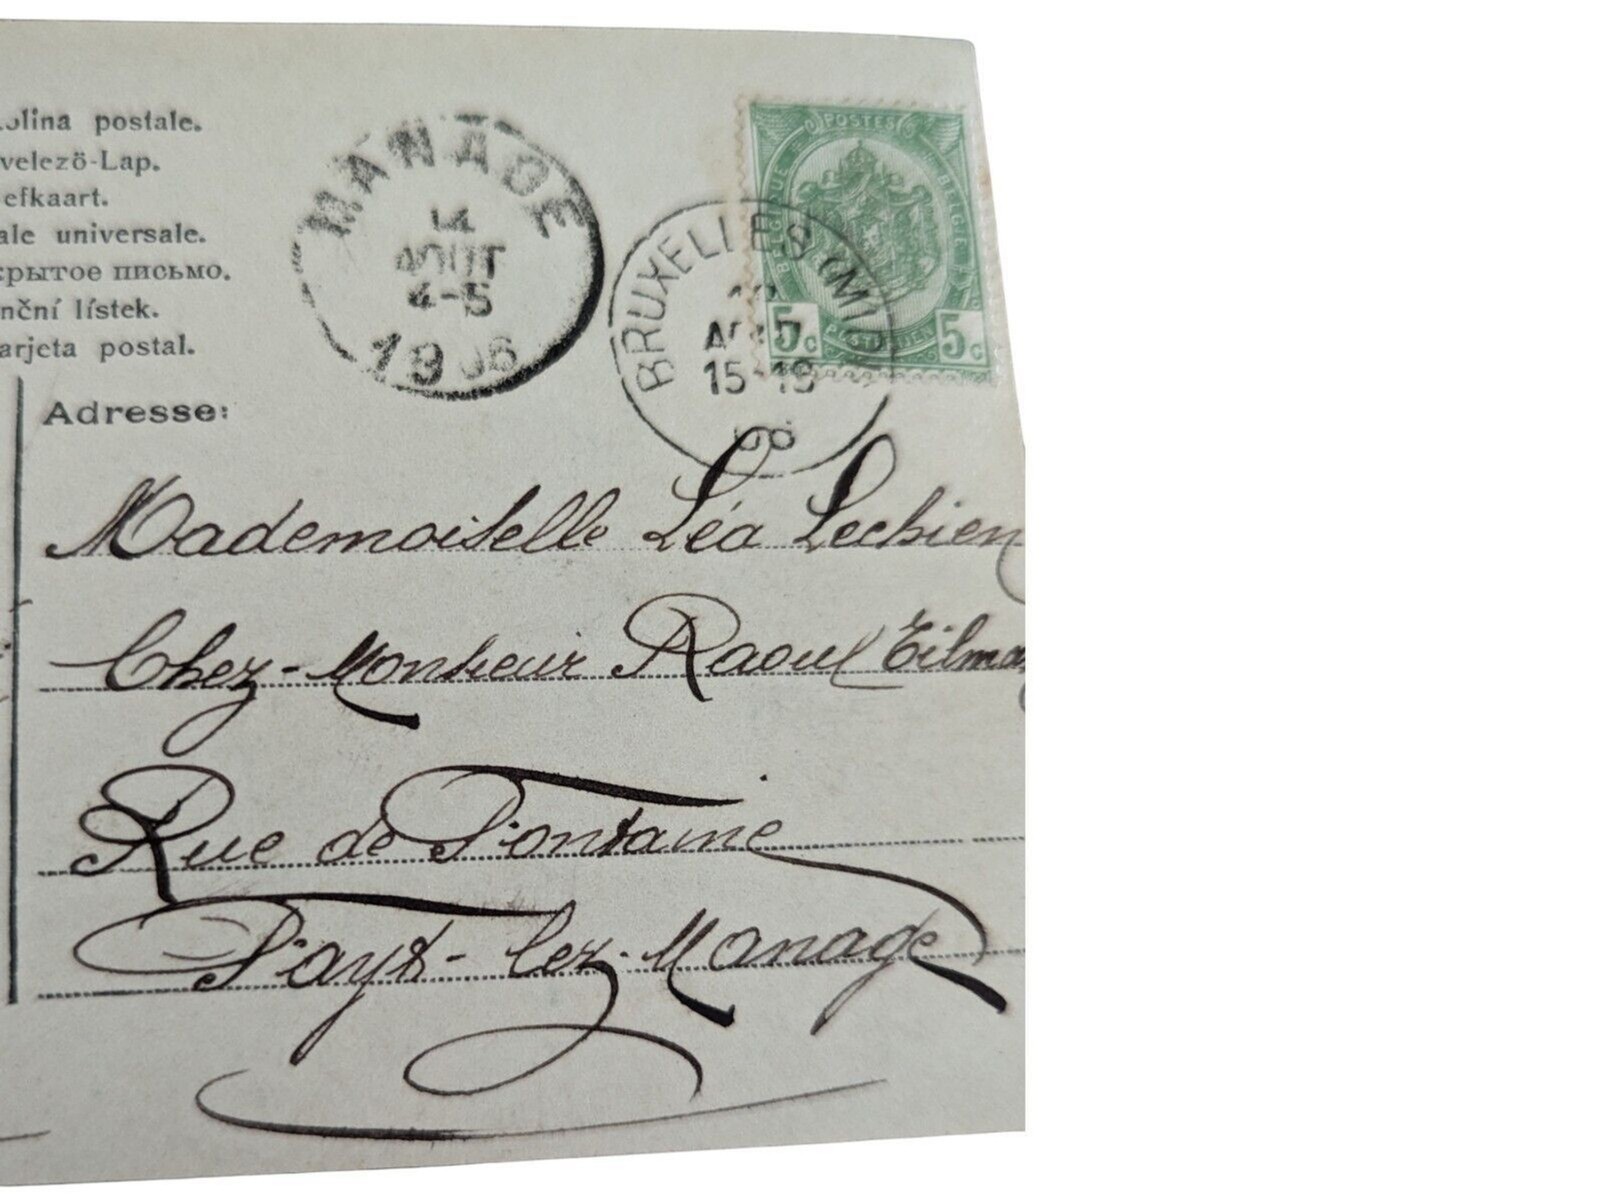 olina postale.
velező-Lap.
efkaart.
ale universale.
крытое письмо.
nční lístek.
arjeta postal.
MANAGE
14
AOUT
4-5
1906
BRUXELLES (MIDI
AOUT
15-16
06
POSTES
BELGIQUE
BELGIE
POSTERIJEN
5c
5c
Adresse:
Mademoiselle Léa Lechien
Chez-Monsieur Raoul Tilma
Rue de Fontaine
Fayt-lez-Manage